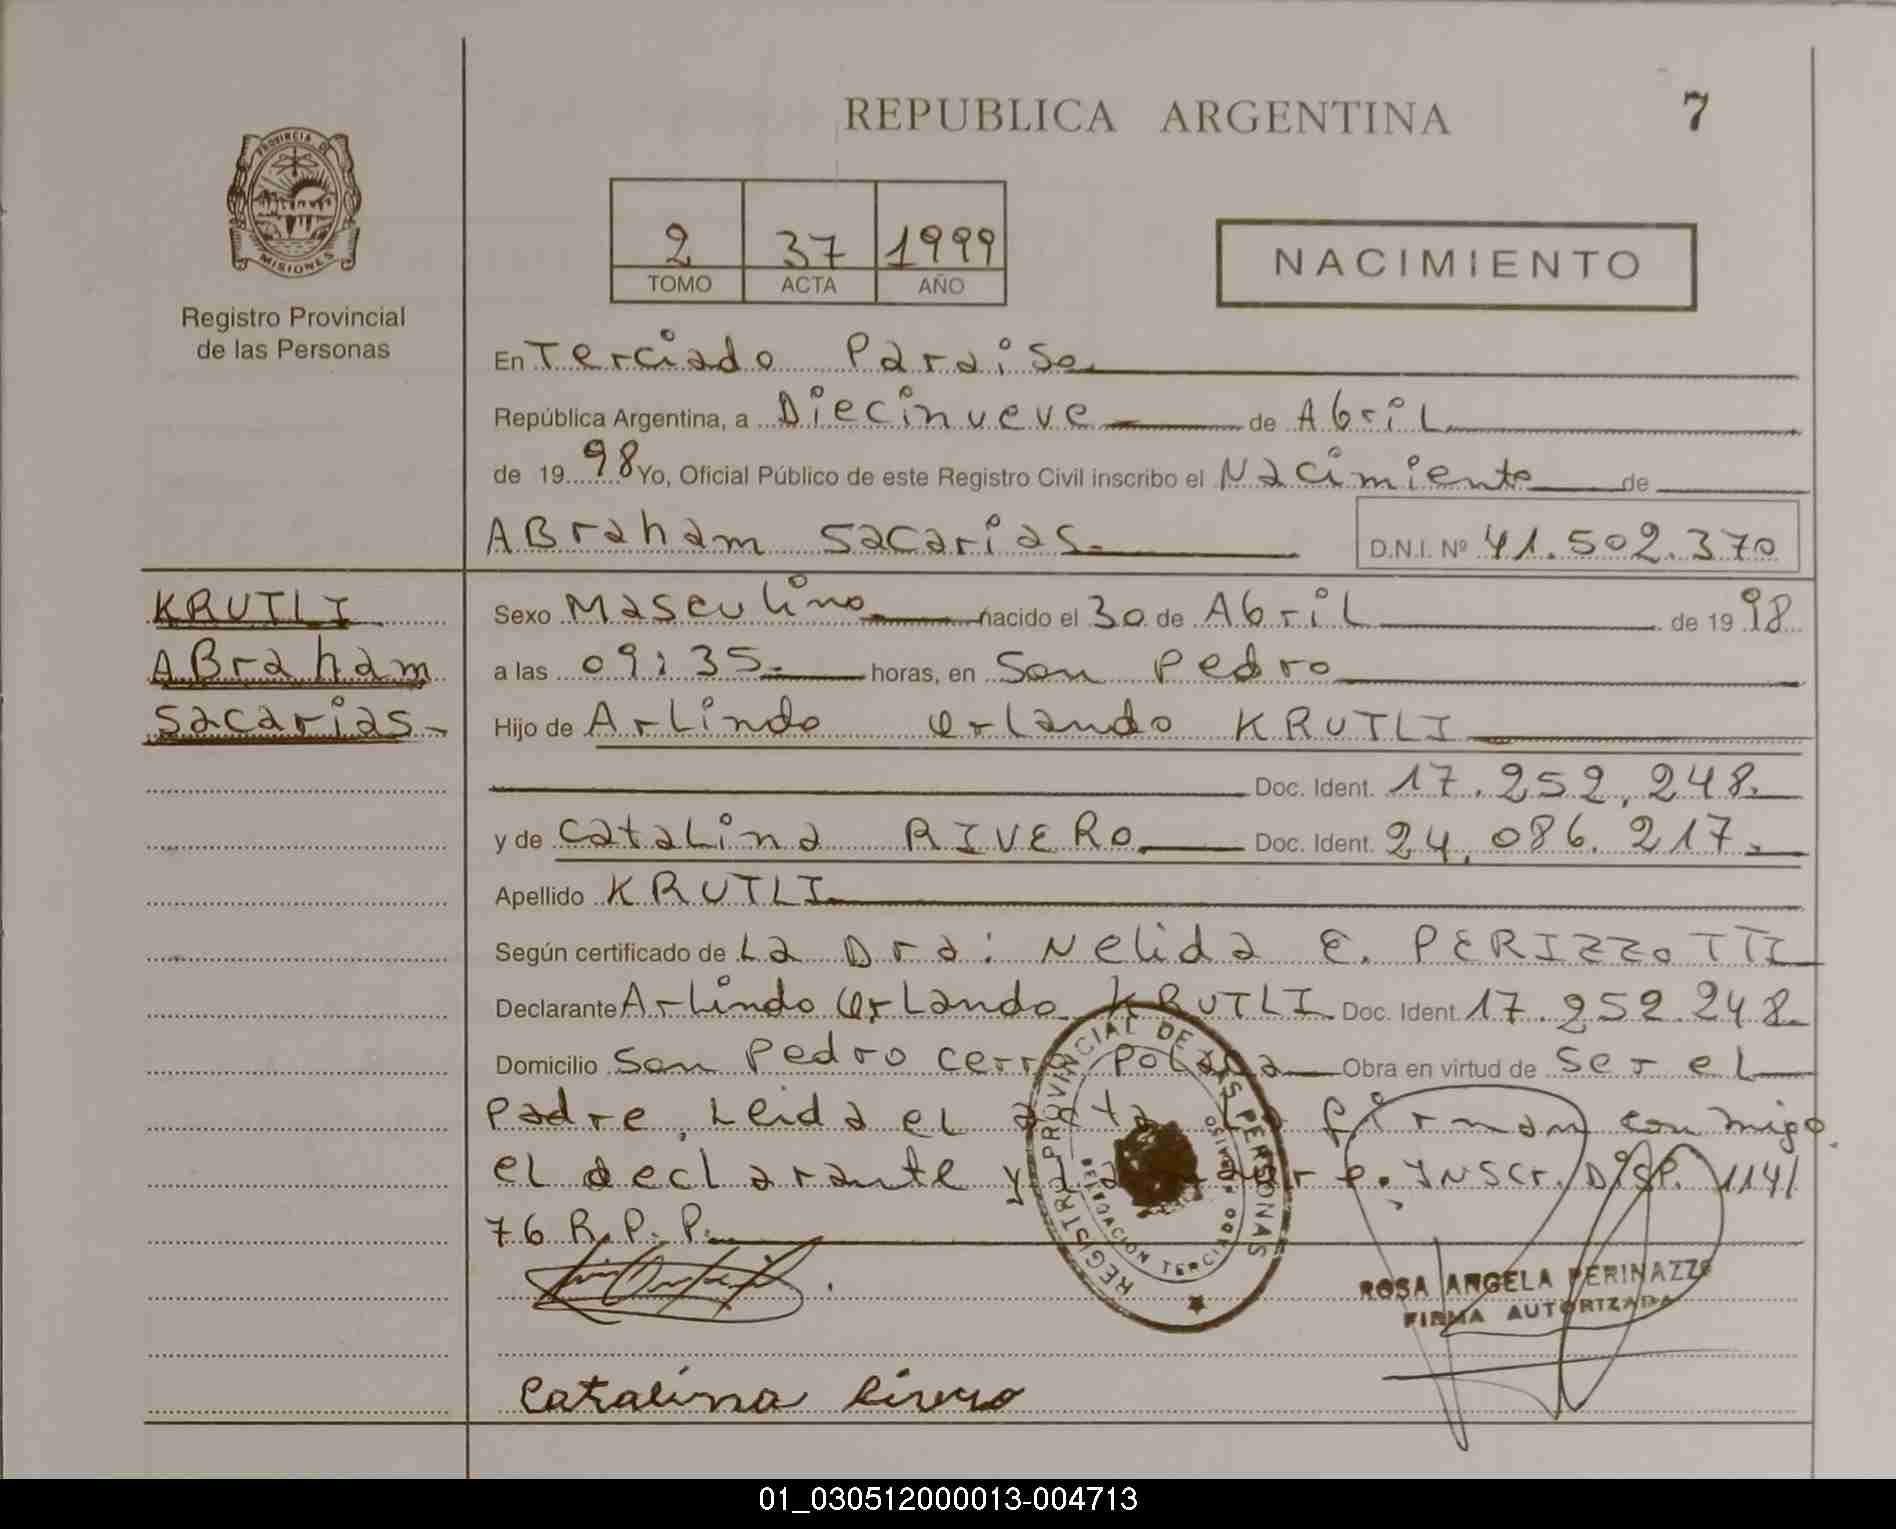 REPUBLICA ARGENTINA
7
PROVINCIA DE
MISIONES
Registro Provincial
de las Personas
2 37 1999
TOMO ACTA AÑO
NACIMIENTO
En Terciado Paraiso
República Argentina, a Diecinueve de Abril
de 19 98 Yo, Oficial Público de este Registro Civil inscribo el Nacimiento de
ABraham Sacarias.
D.N.I. Nº 41.502.370
KRUTLI
ABraham
Sacarias-
Sexo Masculino nacido el 30 de Abril de 19 98
a las 09:35. horas, en San Pedro
Hijo de Arlindo Orlando KRUTLI
Doc. Ident. 17.252.248.
y de Catalina RIVERO. Doc. Ident. 24.086.217.
Apellido KRUTLI
Según certificado de La Dra: Nelida E. PERIZZOTTI
Declarante Arlindo Orlando KRUTLI Doc. Ident 17.252.248.
Domicilio San Pedro cerro Polaca Obra en virtud de Ser el
Padre. Leida el acta La firman con migo.
el declarante y La madre. INSCr. DISP. 114/
76 R.P.P.
REGISTRO PROVINCIAL DE LAS PERSONAS
DELEGACION TERCIADO PARAISO
ROSA ANGELA PERINAZZO
FIRMA AUTORIZADA
Catalina Rivero
01_030512000013-004713